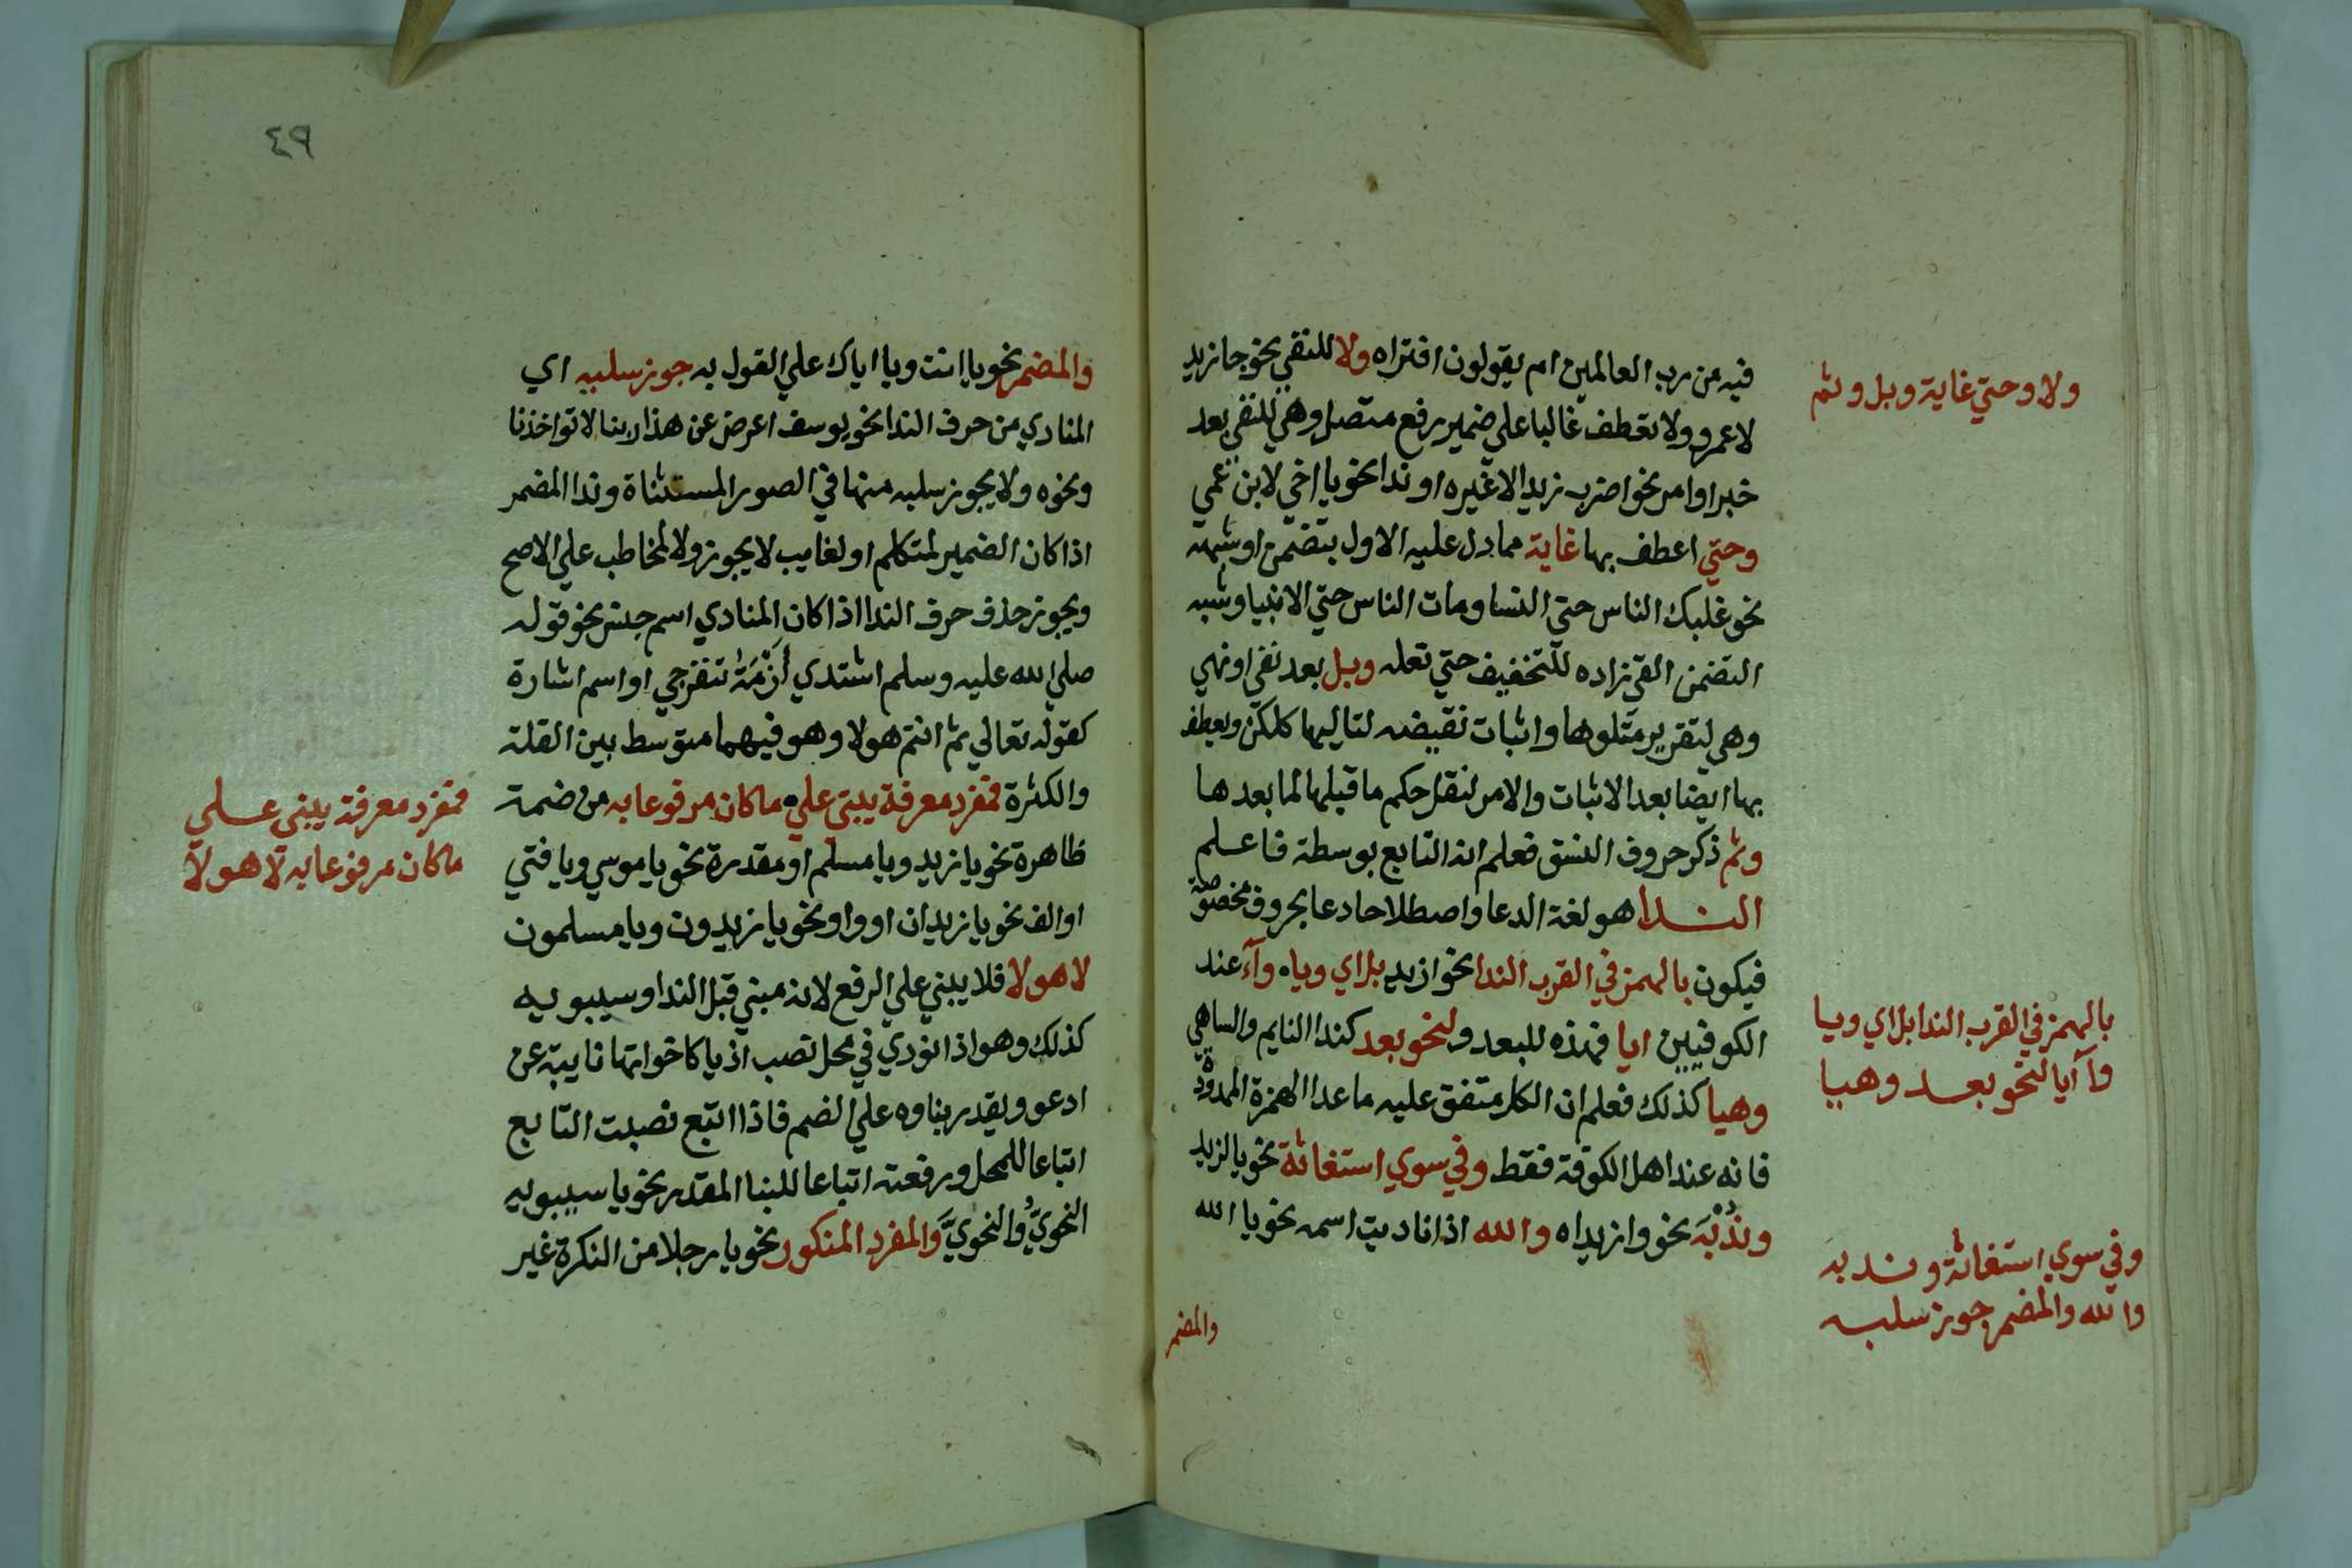 فيه من رب العالمين ام يقولون افتراه ولا للنفي نحو جا زيد
لا عمرو ولا تعطف غالبا على ضمير رفع متصل وهي للنفي بعد
خبر او امر نحو اضرب زيدا لا غيره او ندا نحو يا اخي لا بن عمي
وحتي اعطف بها غاية مما دل عليه الاول بتضمن او شبهه
نحو غلبك الناس حتي النسا ومات الناس حتي الانبيا وشبه
التضمن القي زاده للتخفيف حتي نعله وبل بعد نفي او نهي
وهي لتقرير متلوها واثبات نقيضه لتاليها كلكن ويعطف
بها ايضا بعد الاثبات والامر لنقل حكم ما قبلها لما بعدها
وثم ذكر حروف النسق فعلم انه التابع بوسطة فاعلم
الندا هو لغة الدعا واصطلاحا دعا بحروف مخصوصة
فيكون بالهمز في القرب الندا نحو ازيد بل اي وياه وآء عند
الكوفيين ايا فهذه للبعد ولنحو بعد كندا النايم والساهي
وهيا كذلك فعلم ان الكل متفق عليه ما عدا الهمزة الممدودة
فانه عند اهل الكوفة فقط وفي سوي استغاثة نحو يا لزيد
وندبة نحو وازيداه والله اذا ناديت اسمه نحو يا الله
والمضمر
ولا وحتي غاية وبل وثم
بالهمز في القرب الندا بل اي ويا
وآ آيا لنحو بعد وهيا
وفي سوي استغاثة وندبه
والله والمضمر جوز سلبه
٤٩
والمضمر نحو يا انت ويا اياك علي القول به جوز سلبه اي
المنادي من حرف الندا نحو يوسف اعرض عن هذا ربنا لا تواخذنا
ونحوه ولا يجوز سلبه منها في الصور المستثناة وندا المضمر
اذا كان الضمير لمتكلم او لغايب لا يجوز ولا لمخاطب علي الاصح
ويجوز حذف حرف الندا اذا كان المنادي اسم جنس نحو قوله
صلي الله عليه وسلم اشتدي أزْمَةُ تنفرجي او اسم اشارة
كقوله تعالي ثم انتم هولا وهو فيهما متوسط بين القلة
والكثرة فمفرد معرفة يبني علي ما كان مرفوعا به من ضمة
ظاهرة نحو يا زيد ويا مسلم او مقدرة نحو يا موسي ويا فتي
او الف نحو يا زيدان او واو نحو يا زيدون ويا مسلمون
لا هولا فلا يبني علي الرفع لانه مبني قبل الندا وسيبويه
كذلك وهو اذا نودي في محل نصب اذ يا كاخواتها نايبة عن
ادعو ويقدر بناوه علي الضم فاذا اتبع نصبت التابع
اتباعا للمحل ورفعته اتباعا للبنا المقدر نحو يا سيبويه
النحويُّ والنحويَّ والمفرد المنكور نحو يا رجلا من النكرة غير
فمفرد معرفة يبني علي
ما كان مرفوعا به لا هولا